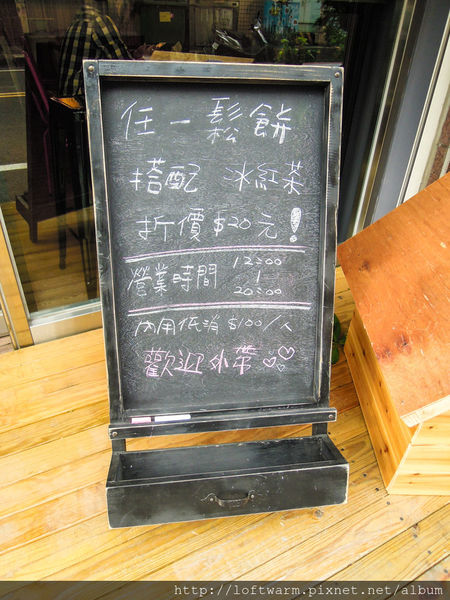 任一鬆餅
搭配 冰紅茶
折價$20元！
營業時間 12:00
｜
20:00
內用低消$100/人
歡迎外帶
http://loftwarm.pixnet.net/album